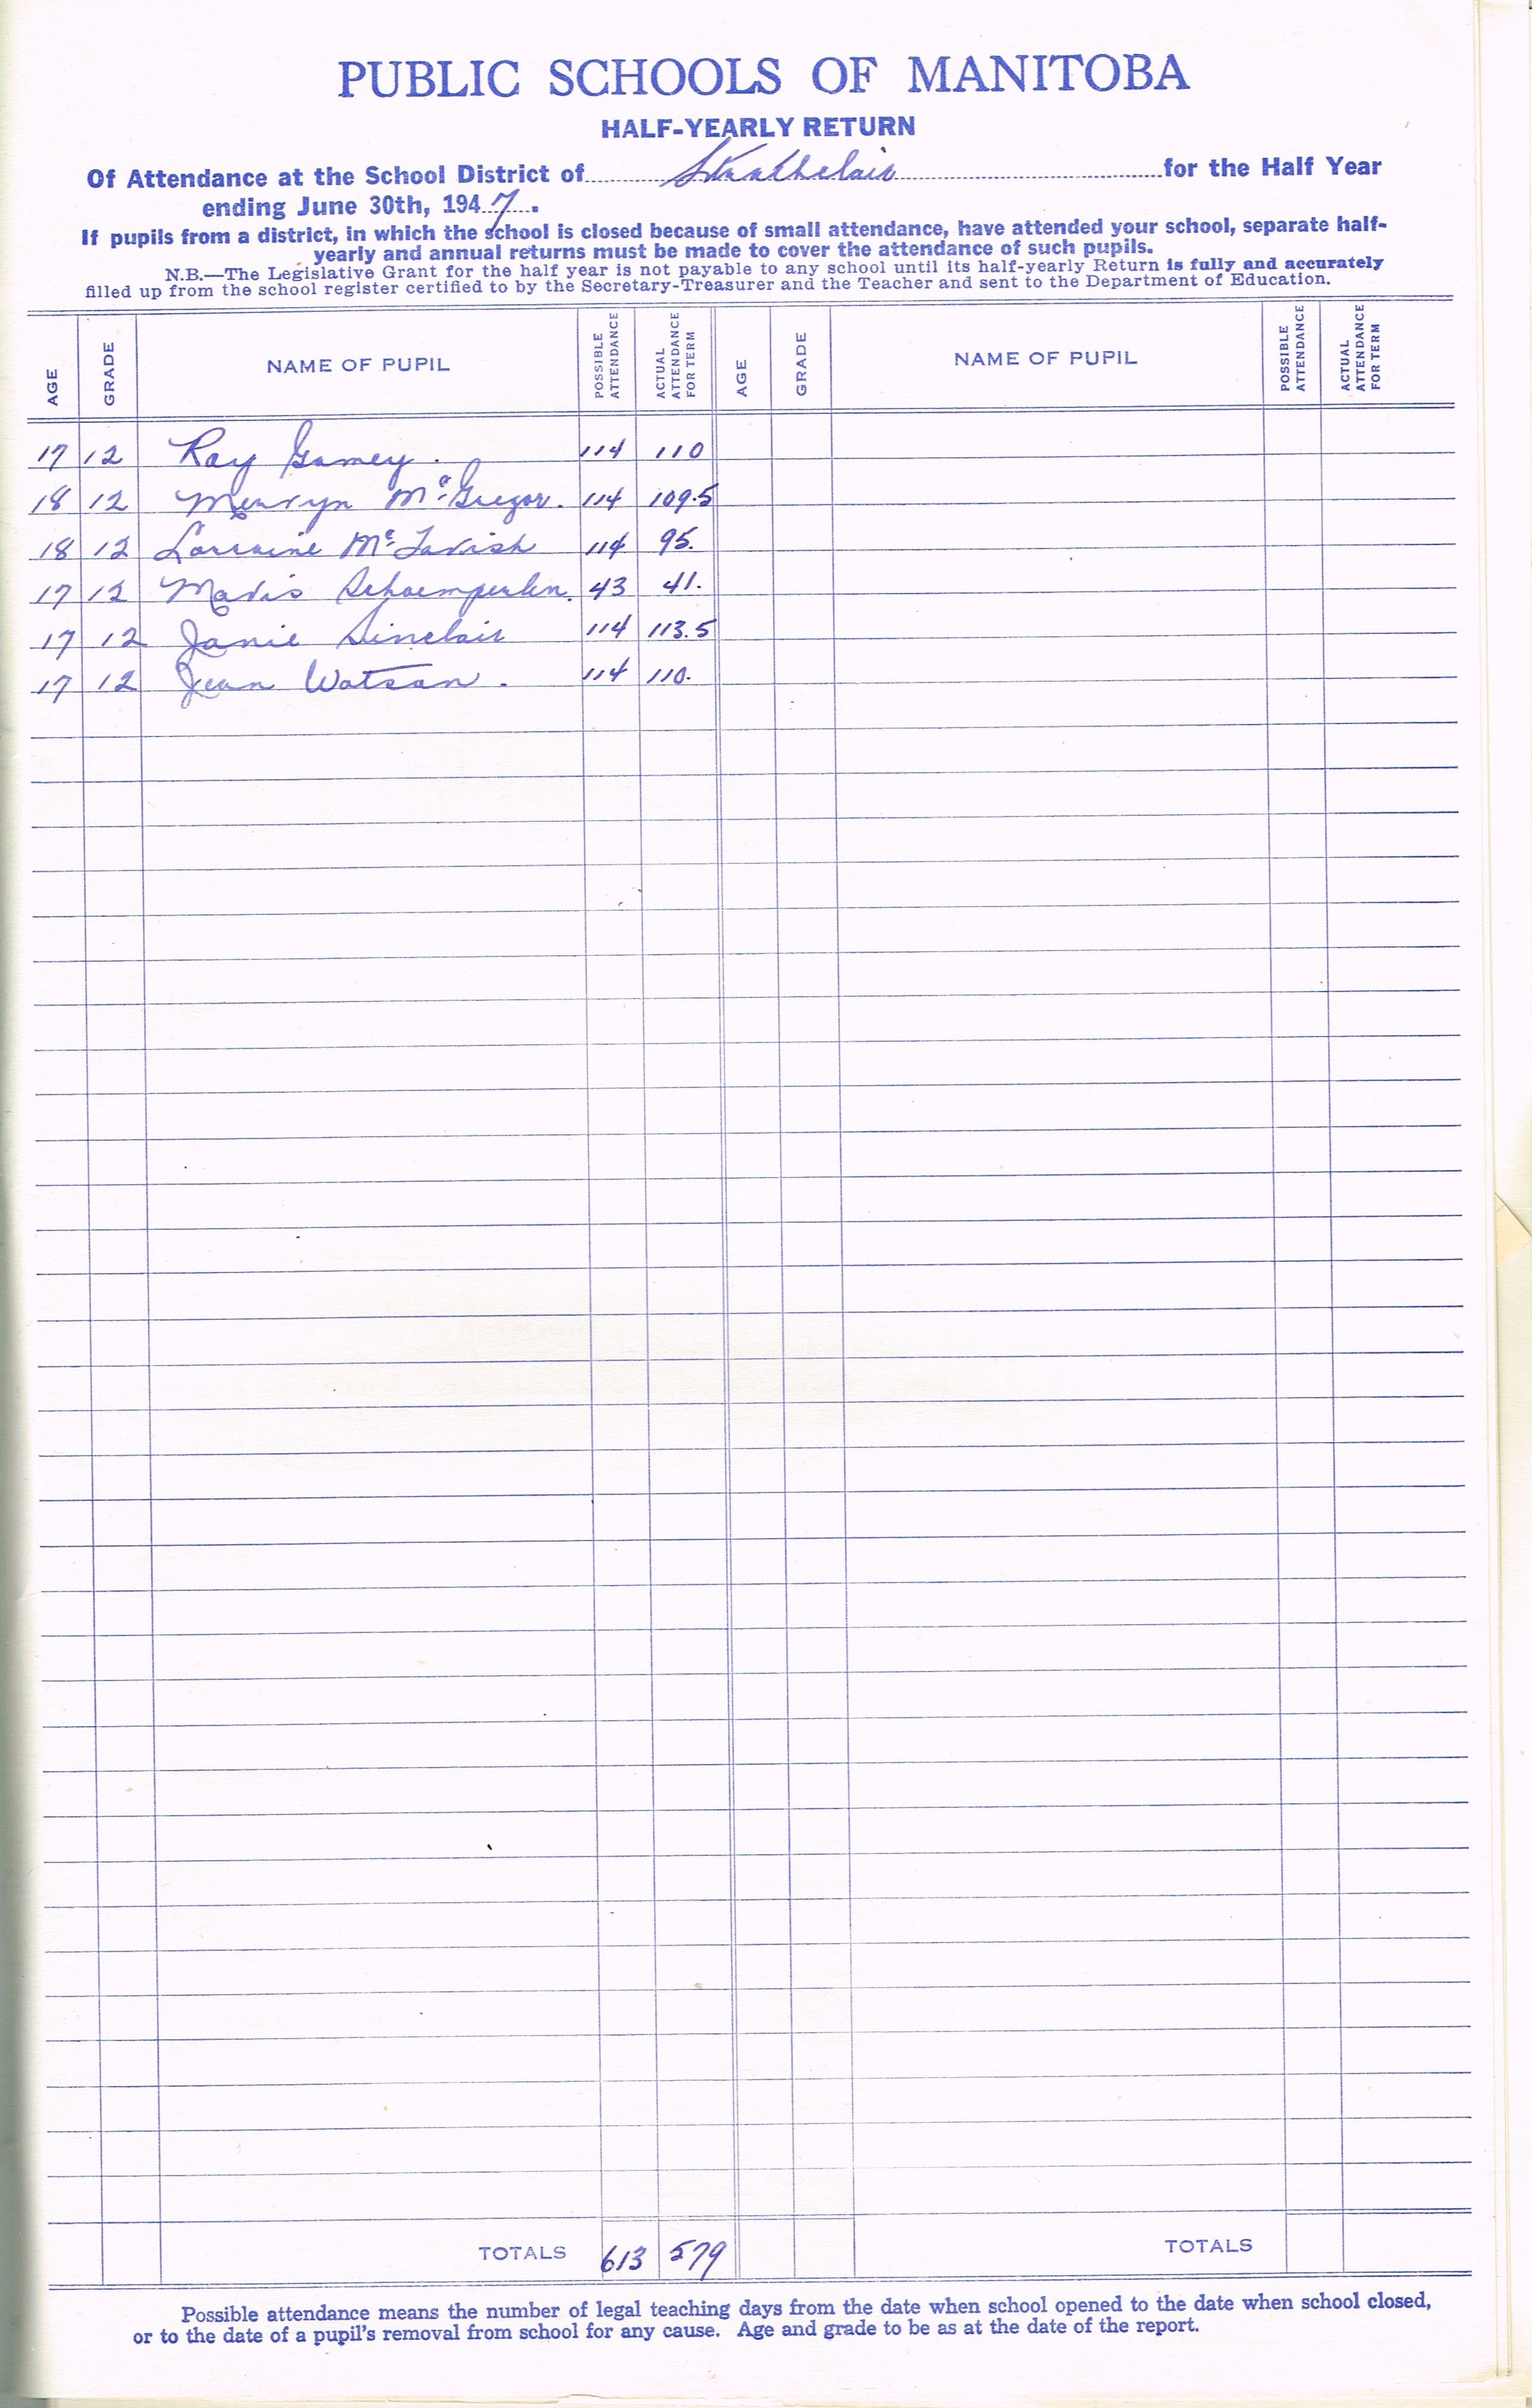 PUBLIC SCHOOLS OF MANITOBA
HALF-YEARLY RETURN
Of Attendance at the School District of Strathclair for the Half Year
ending June 30th, 1947.
If pupils from a district, in which the school is closed because of small attendance, have attended your school, separate half-
yearly and annual returns must be made to cover the attendance of such pupils.
N.B.—The Legislative Grant for the half year is not payable to any school until its half-yearly Return is fully and accurately
filled up from the school register certified to by the Secretary-Treasurer and the Teacher and sent to the Department of Education.
AGE GRADE NAME OF PUPIL POSSIBLE ATTENDANCE ACTUAL ATTENDANCE FOR TERM AGE GRADE NAME OF PUPIL POSSIBLE ATTENDANCE ACTUAL ATTENDANCE FOR TERM
17 12 Ray Gamey. 114 110
18 12 Mervyn McGregor. 114 109.5
18 12 Lorraine McTavish 114 95.
17 12 Mavis Schoemperlen. 43 41.
17 12 Janie Sinclair 114 113.5
17 12 Jean Watson. 114 110.
TOTALS 613 579 TOTALS
Possible attendance means the number of legal teaching days from the date when school opened to the date when school closed,
or to the date of a pupil's removal from school for any cause. Age and grade to be as at the date of the report.